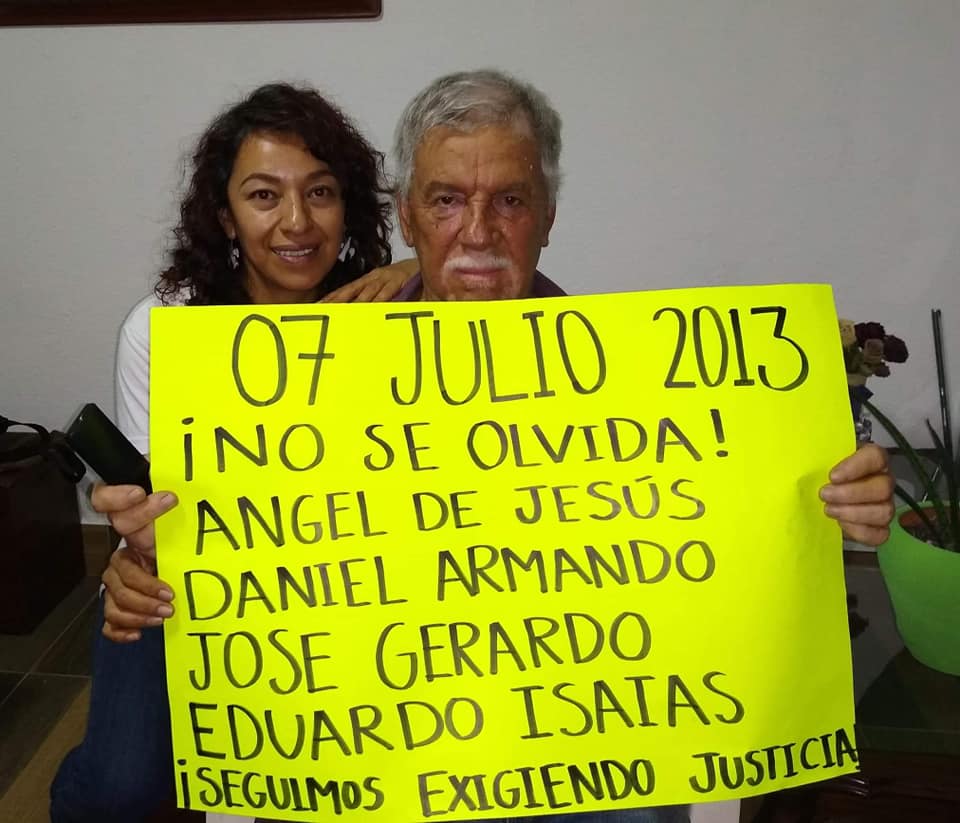 07 JULIO 2013
¡NO SE OLVIDA!
ANGEL DE JESÚS
DANIEL ARMANDO
JOSE GERARDO
EDUARDO ISAIAS
¡SEGUIMOS EXIGIENDO JUSTICIA!